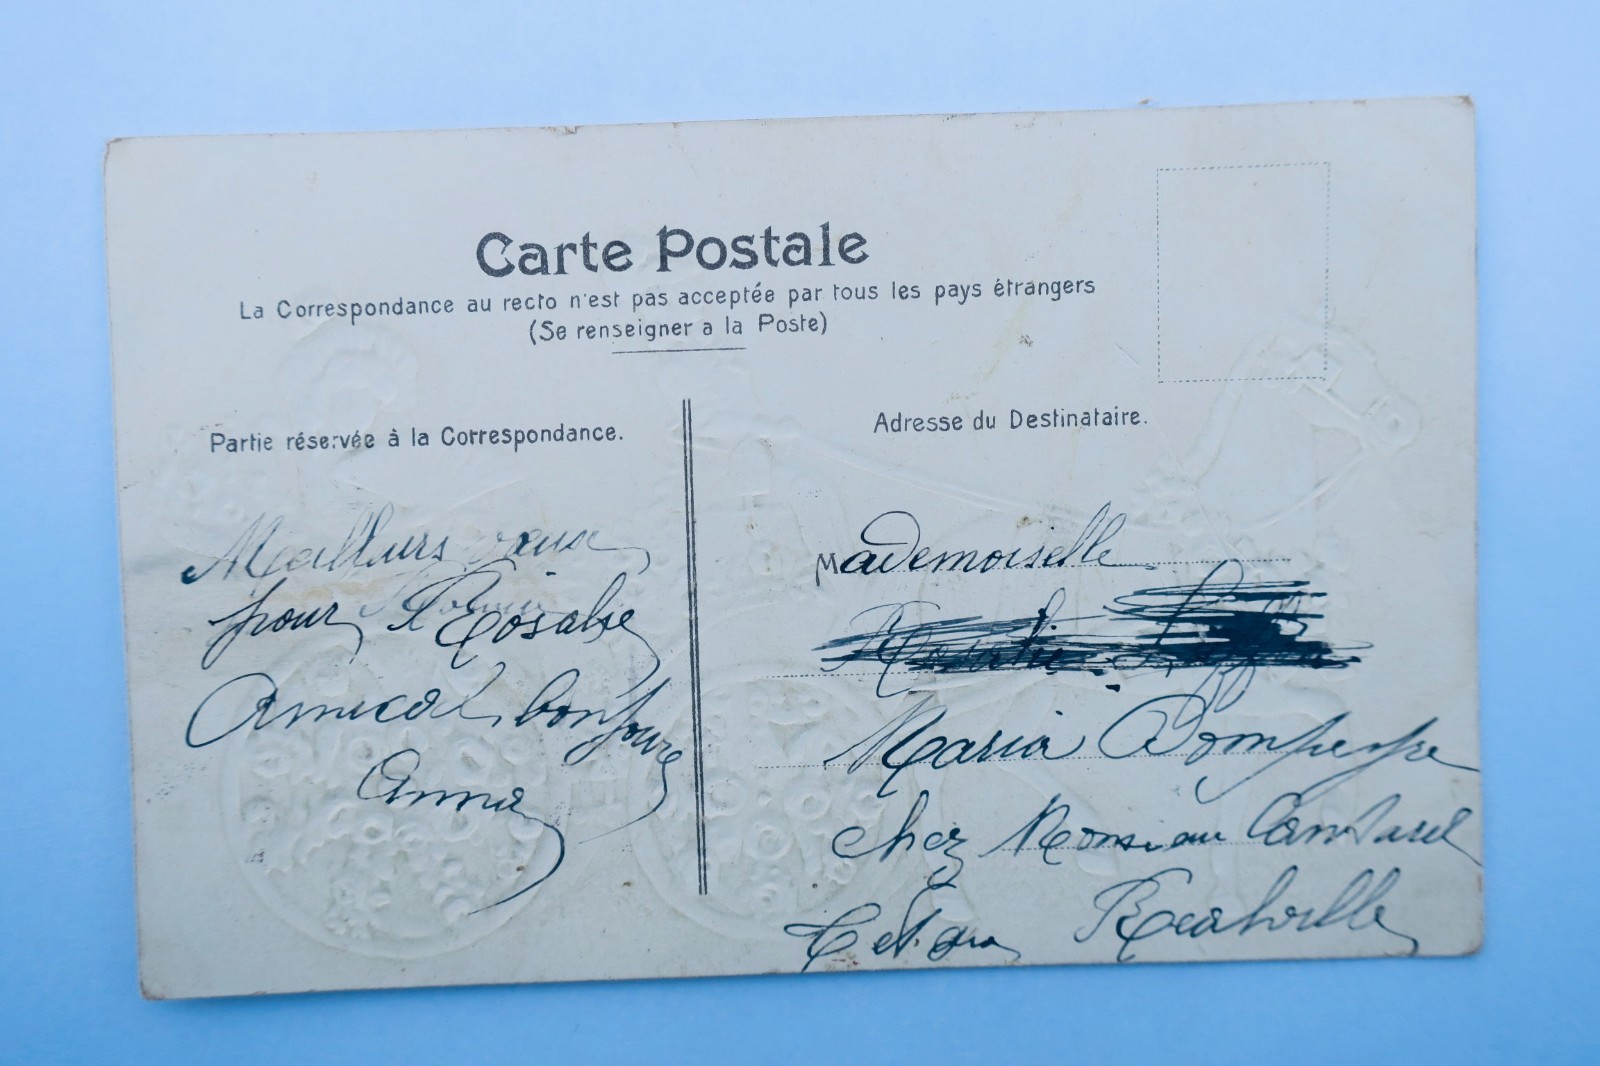 Carte Postale
La Correspondance au recto n'est pas acceptée par tous les pays étrangers
(Se renseigner a la Poste)
Partie réservée à la Correspondance.
Adresse du Destinataire.
Meilleurs vœux
pour Rosalie
Amical bonjour
Anna
Mademoiselle
Rosalie
Maria
chez Monsieur